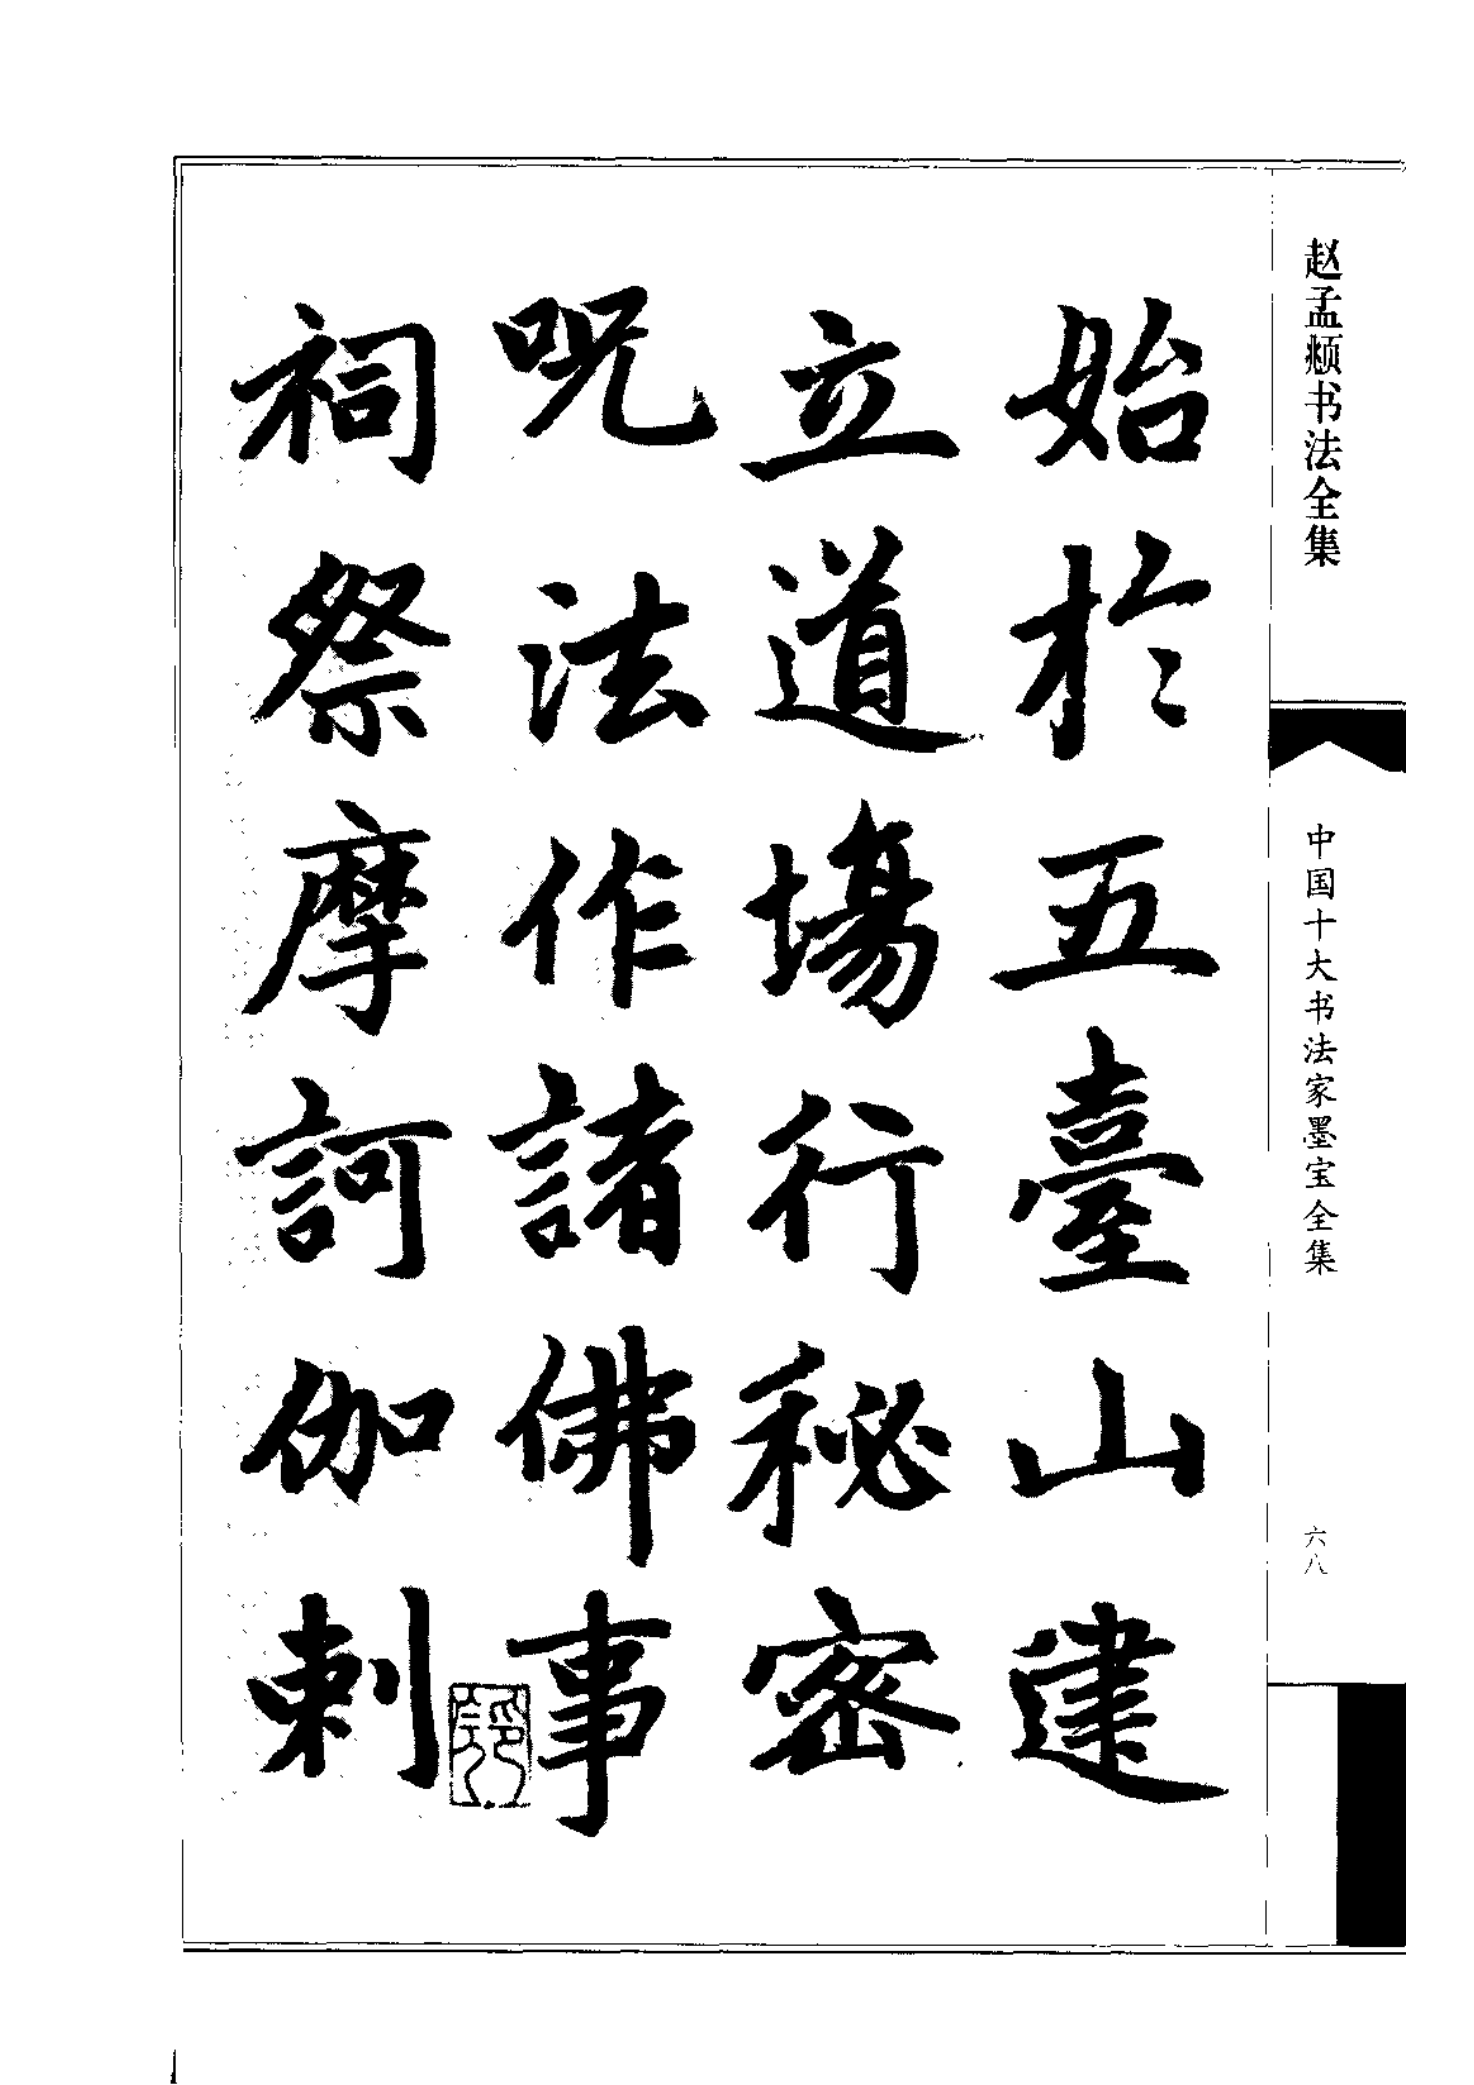 赵孟頫书法全集
中国十大书法家墨宝全集
六八
始於五臺山建
立道場行秘密
呪法作諸佛事
祠祭摩訶伽剌